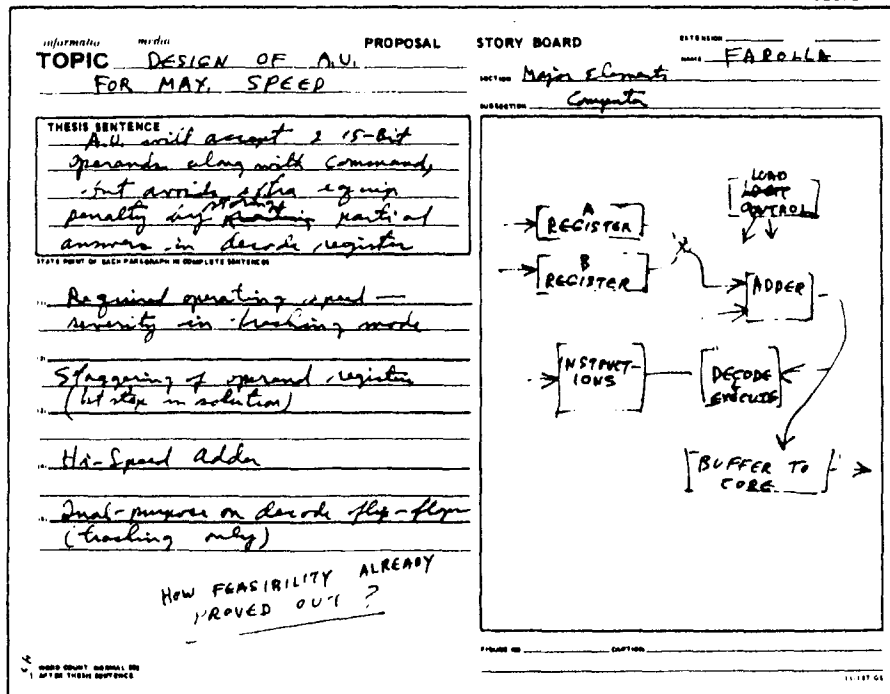 informatio media
PROPOSAL STORY BOARD
TOPIC DESIGN OF A.U.
FOR MAX. SPEED
EXTENSION
NAME FAROLLA
SECTION Major Elements
SUBSECTION Computer
THESIS SENTENCE
A.U. will accept 2 15-Bit
operands along with command,
but avoids extra equip
penalty by storing partial
answers in decode register
STATE POINT OF EACH PARAGRAPH IN COMPLETE SENTENCES
Required operating speed —
severity in tracking mode
Staggering of operand registers
(1st step in solution)
Hi-Speed Adder
Dual-purpose on decode flip-flops
(tracking only)
HOW FEASIBILITY ALREADY
PROVED OUT?
WORD COUNT NORMAL 500
AFTER THESIS SENTENCE
A
REGISTER
B
REGISTER
LOAD
CONTROL
ADDER
INSTRUCT-
IONS
DECODE
&
EXECUTE
BUFFER TO
CORE
FIGURE NO. CAPTION